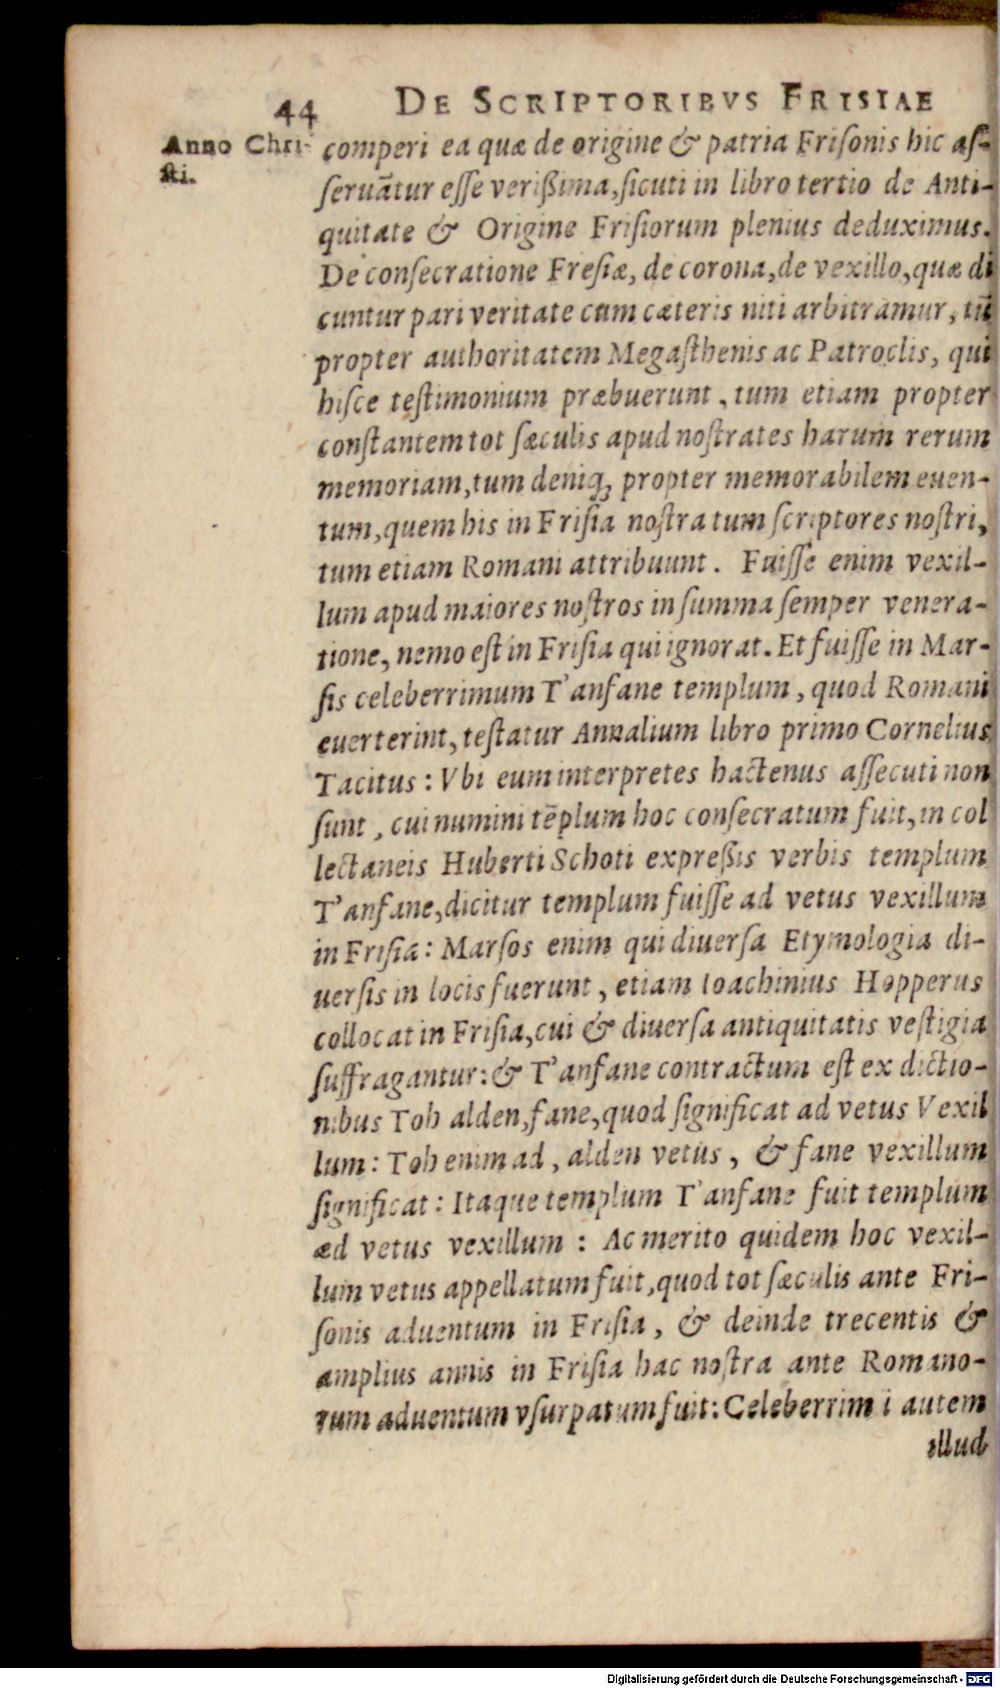 44 DE SCRIPTORIBVS FRISIAE
Anno Chri-
sti.
comperi ea quæ de origine & patria Frisonis hic as-
seruãtur esse verißima, sicuti in libro tertio de Anti-
quitate & Origine Frisiorum plenius deduximus.
De consecratione Fresiæ, de corona, de vexillo, quæ di
cuntur pari veritate cum cæteris niti arbitramur, tũ
propter authoritatem Megasthenis ac Patroclis, qui
hisce testimonium præbuerunt, tum etiam propter
constantem tot sæculis apud nostrates harum rerum
memoriam, tum deniq; propter memorabilem euen-
tum, quem his in Frisia nostra tum scriptores nostri,
tum etiam Romani attribuunt. Fuisse enim vexil-
lum apud maiores nostros in summa semper venera-
tione, nemo est in Frisia qui ignorat. Et fuisse in Mar-
sis celeberrimum T'anfane templum, quod Romani
euerterint, testatur Annalium libro primo Cornelius
Tacitus: Vbi eum interpretes hactenus assecuti non
sunt, cui numini tẽplum hoc consecratum fuit, in col
lectaneis Huberti Schoti expreßis verbis templum
T'anfane, dicitur templum fuisse ad vetus vexillum
in Frisia: Marsos enim qui diuersa Etymologia di-
uersis in locis fuerunt, etiam Ioachinius Hopperus
collocat in Frisia, cui & diuersa antiquitatis vestigia
suffragantur: & T'anfane contractum est ex dictio-
nibus Toh alden, fane, quod significat ad vetus Vexil
lum: Toh enim ad, alden vetus, & fane vexillum
significat: Itaque templum T'anfane fuit templum
ad vetus vexillum: Ac merito quidem hoc vexil-
lum vetus appellatum fuit, quod tot sæculis ante Fri-
sonis aduentum in Frisia, & deinde trecentis &
amplius annis in Frisia hac nostra ante Romano-
rum aduentum vsurpatum fuit: Celeberrimi autem
illud
Digitalisierung gefördert durch die Deutsche Forschungsgemeinschaft - DFG